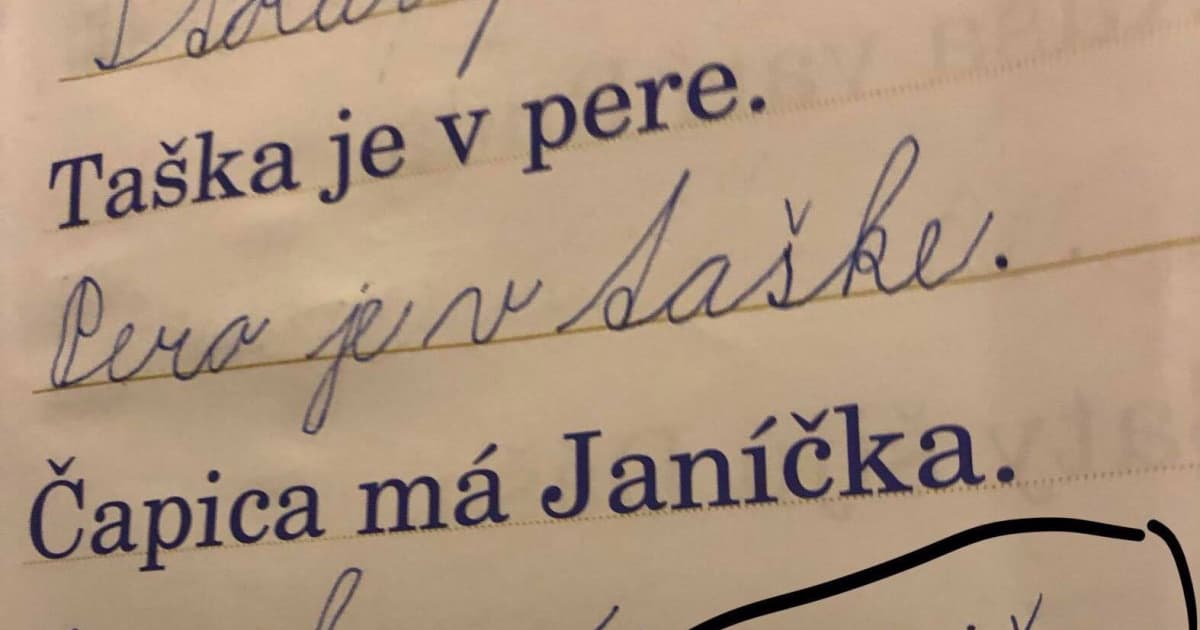 Taška je v pere.
Pero je v taške.
Čapica má Janíčka.